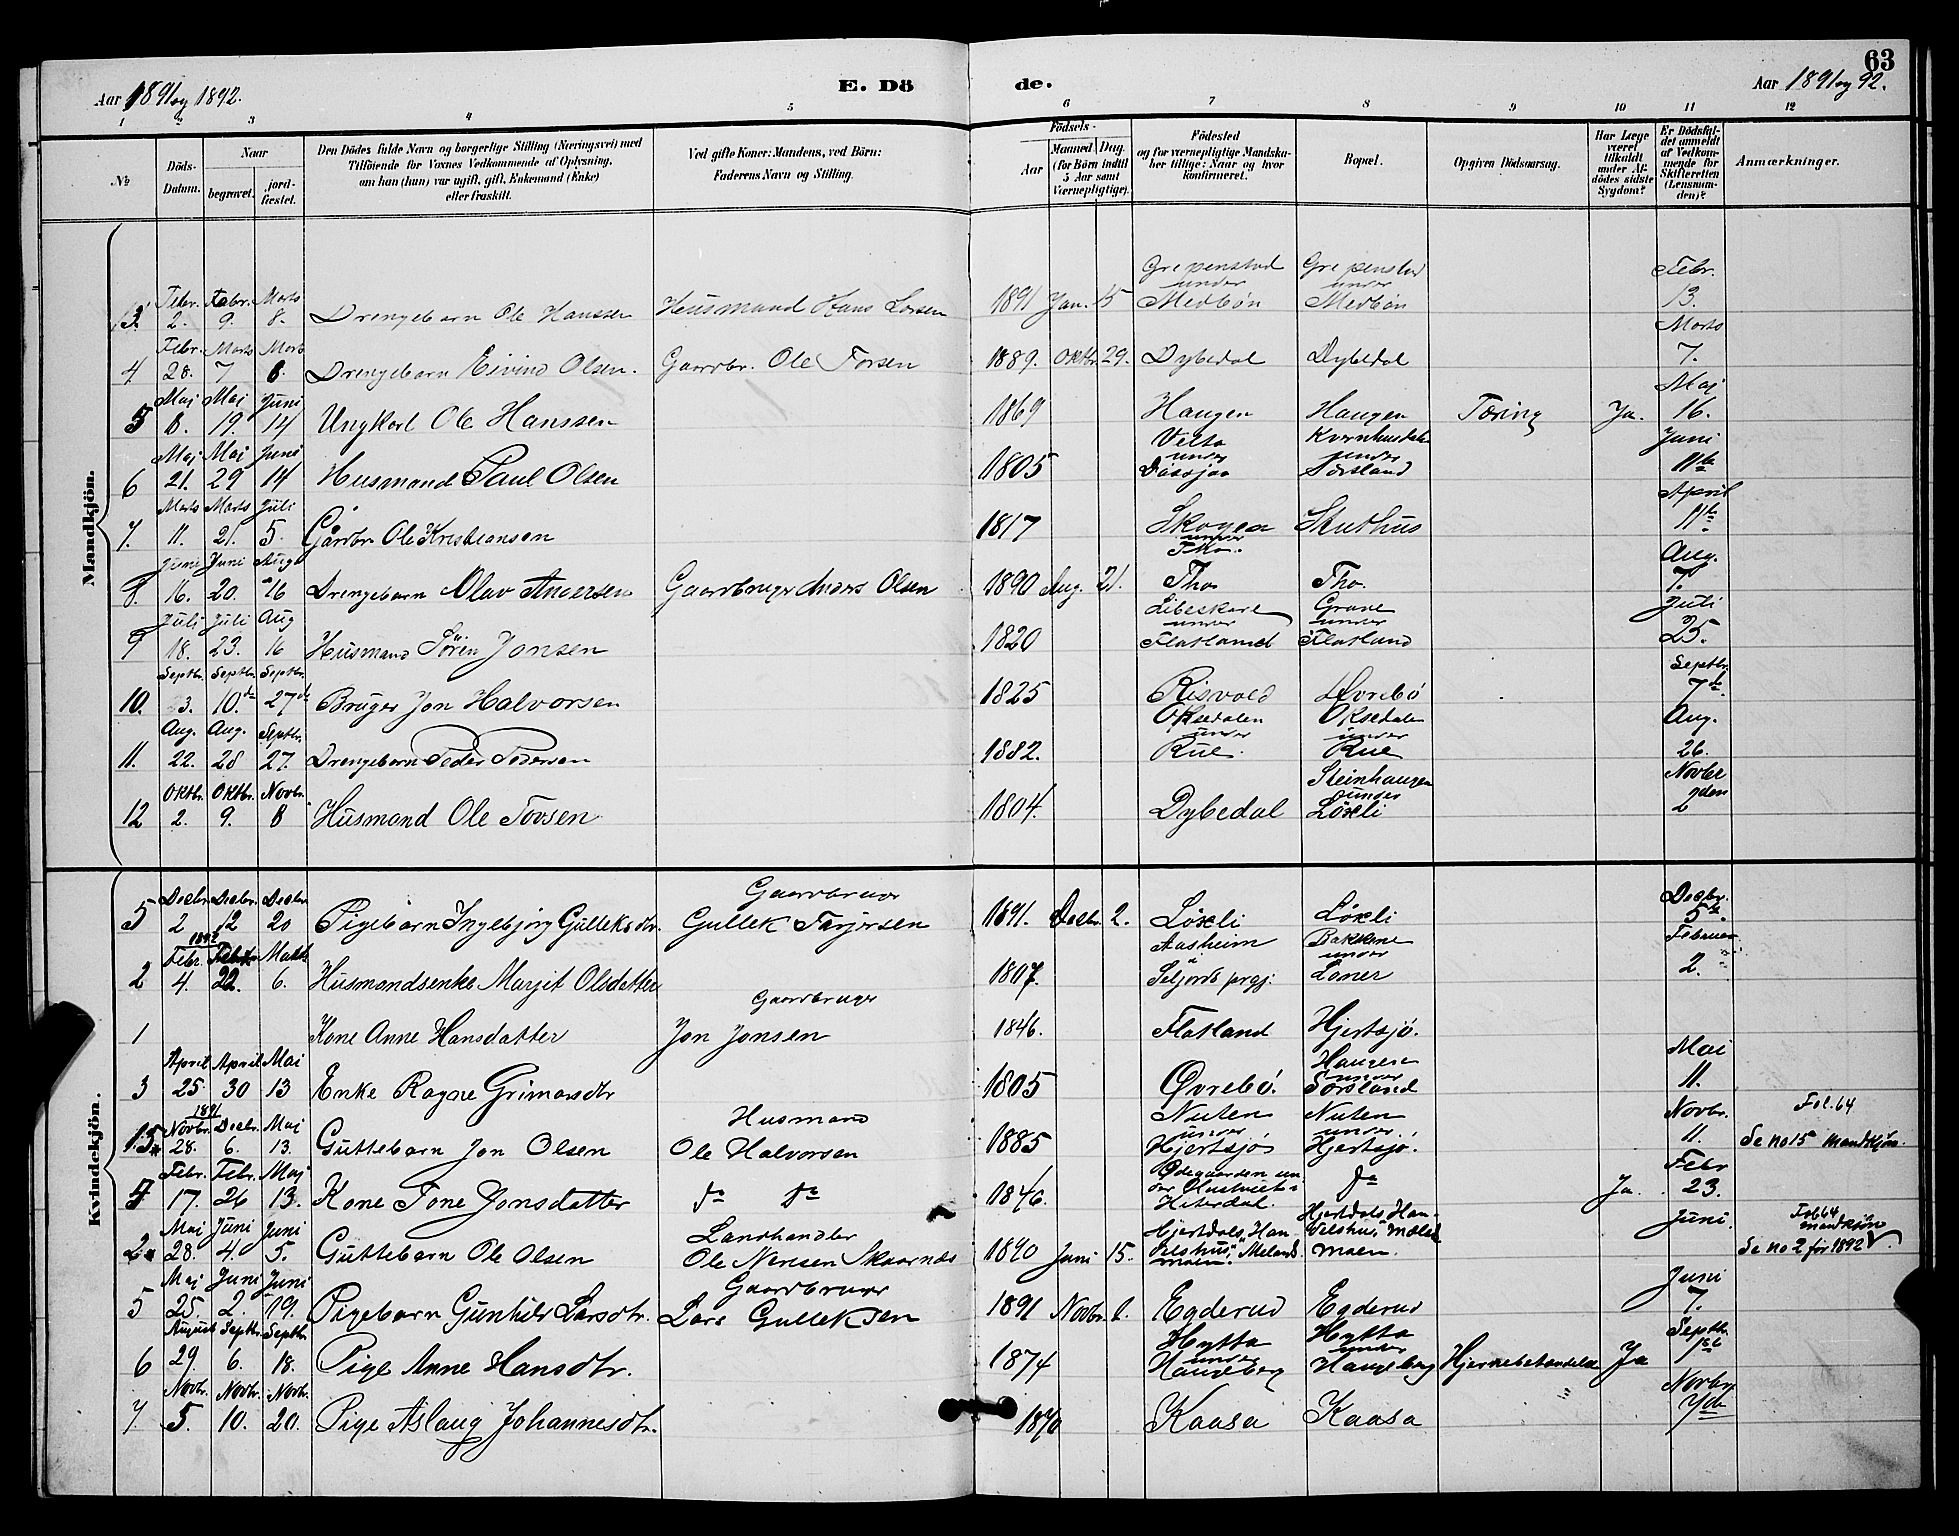 63
Aar 1891 og 1892. E. Dö de. Aar 1891 og 92.
1 2 3 4 5 6 7 8 9 10 11 12
№ Döds-Datum. Naar begravet. jord-fæstet. Den Dödes fulde Navn og borgerlige Stilling (Næringsvei) med Tilföiende for Voxnes Vedkommende af Oplysning, om han (hun) var ugift, gift, Enkemand (Enke) eller fraskilt. Ved gifte Koner: Mandens, ved Börn: Faderens Navn og Stilling. Födsels- Aar Maaned Dag. (for Börn indtil 5 Aar samt Værnepligtige). Födested og for værnepligtige Mandska-ber tillige: Naar og hvor konfirmeret. Bopæl. Opgiven Dödsaarsag. Har Læge været tilkaldt under Af-dödes sidste Sygdom? Er Dödsfal-det anmeldt af Vedkom-mende for Skifteretten (Lensman-den)? Anmærkninger.
Mandkjön.
3. Febr. 2. Febr. 9. Marts 8. Drengebarn Ole Hanssen Husmand Hans Larsen 1891 Jan. 15 Grepenstad under Medbön Grepenstad under Medbön Febr. 13.
4 Febr. 28. Marts 7 Marts 8. Drengebarn Eivind Olsen. Gaardbr. Ole Torsen 1889. Oktbr. 29. Dybedal Dybedal Marts 7.
5 Maj 8. Maj 19. Juni 14 Ungkarl Ole Hanssen 1869 Haugen Haugen Tæring Ja. Maj 16.
6 Maj 21. Maj 29 Juni 14 Husmand Paul Olsen 1805 under under Sørsland Juni 11te
7. Marts 11. Marts 21. Juli 5. Gårdbr. Ole Kristiansen 1817 Skogen under Skuthus April 11te
8. Juni 16. Juni 20. Aug. 16 Drengebarn Olav Andersen Gaardbruger Anders Olsen 1890 Aug. 21. Tho Tho. Aug. 7.
9 Juli 18. Juli 23. Aug 16 Husmand Sören Jonsen 1820 under Flatland Grave under Flatland Juli 25.
10. Septbr. 3. Septbr. 10de Septbr. 27de Bruger Jon Halvorsen 1825 Risvold Øvrebö Septbr. 7de
11. Aug. 22. Aug. 28 Septbr. 27. Drengebarn Peder Pedersen 1882. Oksedalen under Rue. Oksedalen under Rue Aug. 26.
12 Oktbr. 2. Oktbr. 9. Novbr. 8 Husmand Ole Tovsen 1804. Dybedal Steinhaugen under Löxli Novbr 2den
Kvindekjön.
5 Decbr 2 Decbr. 12 Decbr 20 Pigebarn Ingebjörg Gulleksdtr. Gaardbruger Gullek Tarjersen 1891. Decbr. 2. Löxli Löxli Decbr. 5te
2 1892 Febr. 4. Febr. 22. Marts 6. Husmandsenke Margit Olsdatter 1807. Aasheim i Seljords prgj. Bakkene under Loner Februar 2.
1 Kone Anne Hansdatter Gaardbruger Jon Jonsen 1846. Flatland Hjertsjö.
3 April 25. April 30 Maj 13 Enke Ragne Grimarsdtr 1805 Øvrebö. Haugen under Sørsland Mai 11.
15* 1891 Novbr. 28. Decbr. 6. Maj 13. Guttebarn Jon Olsen Husmand Ole Halvorsen 1885 Nuten under Hjertsjö Nuten under Hjertsjö. Novbr. 11. Fol. 64 Se no 15 mandkjön.
4 Febr. 17. Febr. 26 Maj 13. Kone Tone Jonsdatter do do 1846. Ødegaarden un der i Hiterdal. do Ja. Febr 23.
2* Maj 28. Juni 4. Juni 5. Guttebarn Ole Olsen Landhandler Ole Nensen Skaarnæs 1890 Juni 15. Hjertdals Han delshus, Mælands moen. Hjertdals Han-delshus, Mæland moen. Juni. Fol 64 mandkjön Se no 2 for 1892
5 Maj 25. Juni 2. Juni 19. Pigebarn Gunhild Larsdtr. Gaardbruger Lars Gulleksen 1891 Novbr 1. Egderud Egderud Juni 7.
6 August 29. Septbr. 6. Septbr. 18. Pige Anne Hansdtr. 1874 Hytta under Haugeberg Hytta under Haugeberg Hjernebetændelse Ja Septbr. 1ste
7 Novbr. 5. Novbr. 10. Novbr. 20. Pige Aslaug Johannesdtr. 1870 Kaasa Kaasa Novbr. 7de